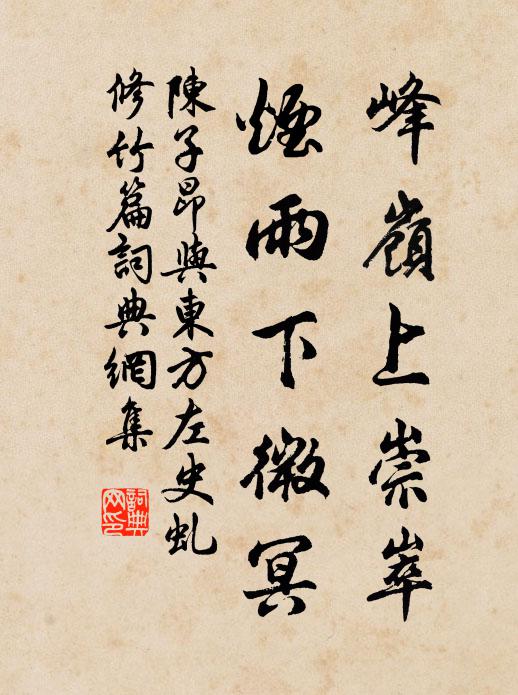 峰嶺上崇崒
煙雨下微冥
陳子昂與東方左史虬
修竹篇詞典網集
詞典網印